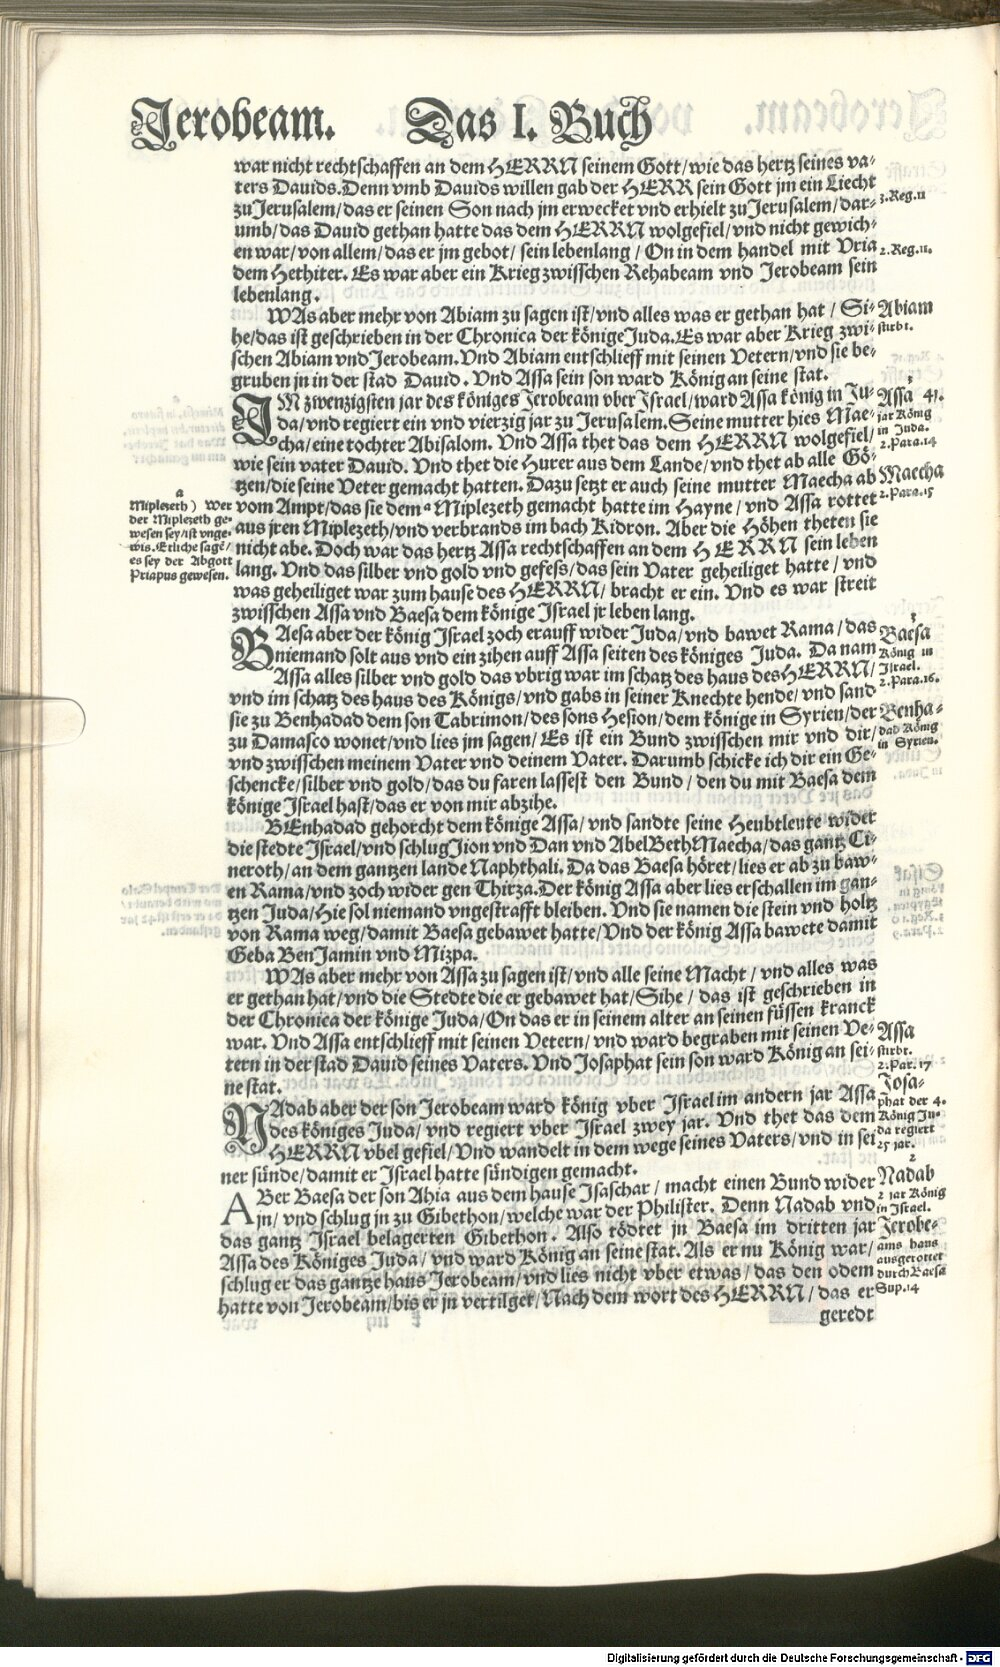 Jerobeam. Das I. Buch
war nicht rechtschaffen an dem HERRN seinem Gott/ wie das hertz seines va-
ters Dauids. Denn vmb Dauids willen gab der HERR sein Gott jm ein Liecht
zu Jerusalem/ das er seinen Son nach jm erwecket vnd erhielt zu Jerusalem/ dar-
umb/ das Dauid gethan hatte das dem HERRN wolgefiel/ vnd nicht gewich-
en war/ von allem/ das er jm gebot/ sein lebenlang/ On in dem handel mit Vria
dem Hethiter. Es war aber ein Krieg zwisschen Rehabeam vnd Jerobeam sein
lebenlang.
3. Reg. 11
2. Reg. 11.
WAs aber mehr von Abiam zu sagen ist/ vnd alles was er gethan hat/ Si-
he/ das ist geschrieben in der Chronica der könige Juda. Es war aber Krieg zwi-
schen Abiam vnd Jerobeam. Vnd Abiam entschlieff mit seinen Vetern/ vnd sie be-
gruben jn in der stad Dauid. Vnd Assa sein son ward König an seine stat.
Abiam
stirbt.
IM zwenzigsten jar des königes Jerobeam vber Israel/ ward Assa könig in Ju-
da/ vnd regiert ein vnd vierzig jar zu Jerusalem. Seine mutter hies Mae-
cha/ eine tochter Abisalom. Vnd Assa thet das dem HERRN wolgefiel/
wie sein vater Dauid. Vnd thet die Hurer aus dem Lande/ vnd thet ab alle Gö-
tzen/ die seine Veter gemacht hatten. Dazu setzt er auch seine mutter Maecha ab
vom Ampt/ das sie dem a Miplezeth gemacht hatte im Hayne/ vnd Assa rottet
aus jren Miplezeth/ vnd verbrands im bach Kidron. Aber die Höhen theten sie
nicht abe. Doch war das hertz Assa rechtschaffen an dem HERRN sein leben
lang. Vnd das silber vnd gold vnd gefess/ das sein Vater geheiliget hatte/ vnd
was geheiliget war zum hause des HERRN/ bracht er ein. Vnd es war streit
zwisschen Assa vnd Baesa dem könige Israel jr leben lang.
3
Assa 41.
jar König
in Juda.
2. Para. 14
Maecha
2. Para. 15
a
Miplezeth) Wer
der Miplezeth ge-
wesen sey/ ist vnge-
wis. Etliche sagē/
es sey der Abgott
Priapus gewesen.
BAesa aber der könig Israel zoch erauff wider Juda/ vnd bawet Rama/ das
niemand solt aus vnd ein zihen auff Assa seiten des königes Juda. Da nam
Assa alles silber vnd gold das vbrig war im schatz des haus des HERRN/
vnd im schatz des haus des Königs/ vnd gabs in seiner Knechte hende/ vnd sand
sie zu Benhadad dem son Tabrimon/ des sons Hesion/ dem könige in Syrien/ der
zu Damasco wonet/ vnd lies jm sagen/ Es ist ein Bund zwisschen mir vnd dir/
vnd zwisschen meinem Vater vnd deinem Vater. Darumb schicke ich dir ein Ge-
schencke/ silber vnd gold/ das du faren lassest den Bund/ den du mit Baesa dem
könige Israel hast/ das er von mir abzihe.
3
Baesa
König in
Israel.
2. Para. 16.
Benha-
dad König
in Syrien.
BEnhadad gehorcht dem könige Assa/ vnd sandte seine Heubtleute wider
die stedte Israel/ vnd schlug Jion vnd Dan vnd AbelBethMaecha/ das gantz Ci-
neroth/ an dem gantzen lande Naphthali. Da das Baesa höret/ lies er ab zu baw-
en Rama/ vnd zoch wider gen Thirza. Der könig Assa aber lies erschallen im gan-
tzen Juda/ Hie sol niemand vngestrafft bleiben. Vnd sie namen die stein vnd holtz
von Rama weg/ damit Baesa gebawet hatte/ Vnd der könig Assa bawete damit
Geba BenJamin vnd Mizpa.
WAs aber mehr von Assa zu sagen ist/ vnd alle seine Macht/ vnd alles was
er gethan hat/ vnd die Stedte die er gebawet hat/ Sihe/ das ist geschrieben in
der Chronica der könige Juda/ On das er in seinem alter an seinen füssen kranck
war. Vnd Assa entschlieff mit seinen Vetern/ vnd ward begraben mit seinen Ve-
tern in der stad Dauid seines Vaters. Vnd Josaphat sein son ward König an sei-
ne stat.
Assa
stirbt.
2. Par. 17
Josa-
phat der 4.
König Ju-
da regiert
25 jar.
NAdab aber der son Jerobeam ward könig vber Israel im andern jar Assa
des königes Juda/ vnd regiert vber Israel zwey jar. Vnd thet das dem
HERRN vbel gefiel/ Vnd wandelt in dem wege seines Vaters/ vnd in sei
ner sünde/ damit er Israel hatte sündigen gemacht.
ABer Baesa der son Ahia aus dem hause Isaschar/ macht einen Bund wider
jn/ vnd schlug jn zu Gibethon/ welche war der Philister. Denn Nadab vnd
das gantz Israel belagerten Gibethon. Also tödtet jn Baesa im dritten jar
Assa des Königes Juda/ vnd ward König an seine stat. Als er nu König war/
schlug er das gantze haus Jerobeam/ vnd lies nicht vber etwas/ das den odem
hatte von Jerobeam/ bis er jn vertilget/ Nach dem wort des HERRN/ das er
geredt
2
Nadab
2 jar König
in Israel.
Jerobe-
ams haus
ausgerottet
durch Baesa
Sup. 14
Digitalisierung gefördert durch die Deutsche Forschungsgemeinschaft - DFG